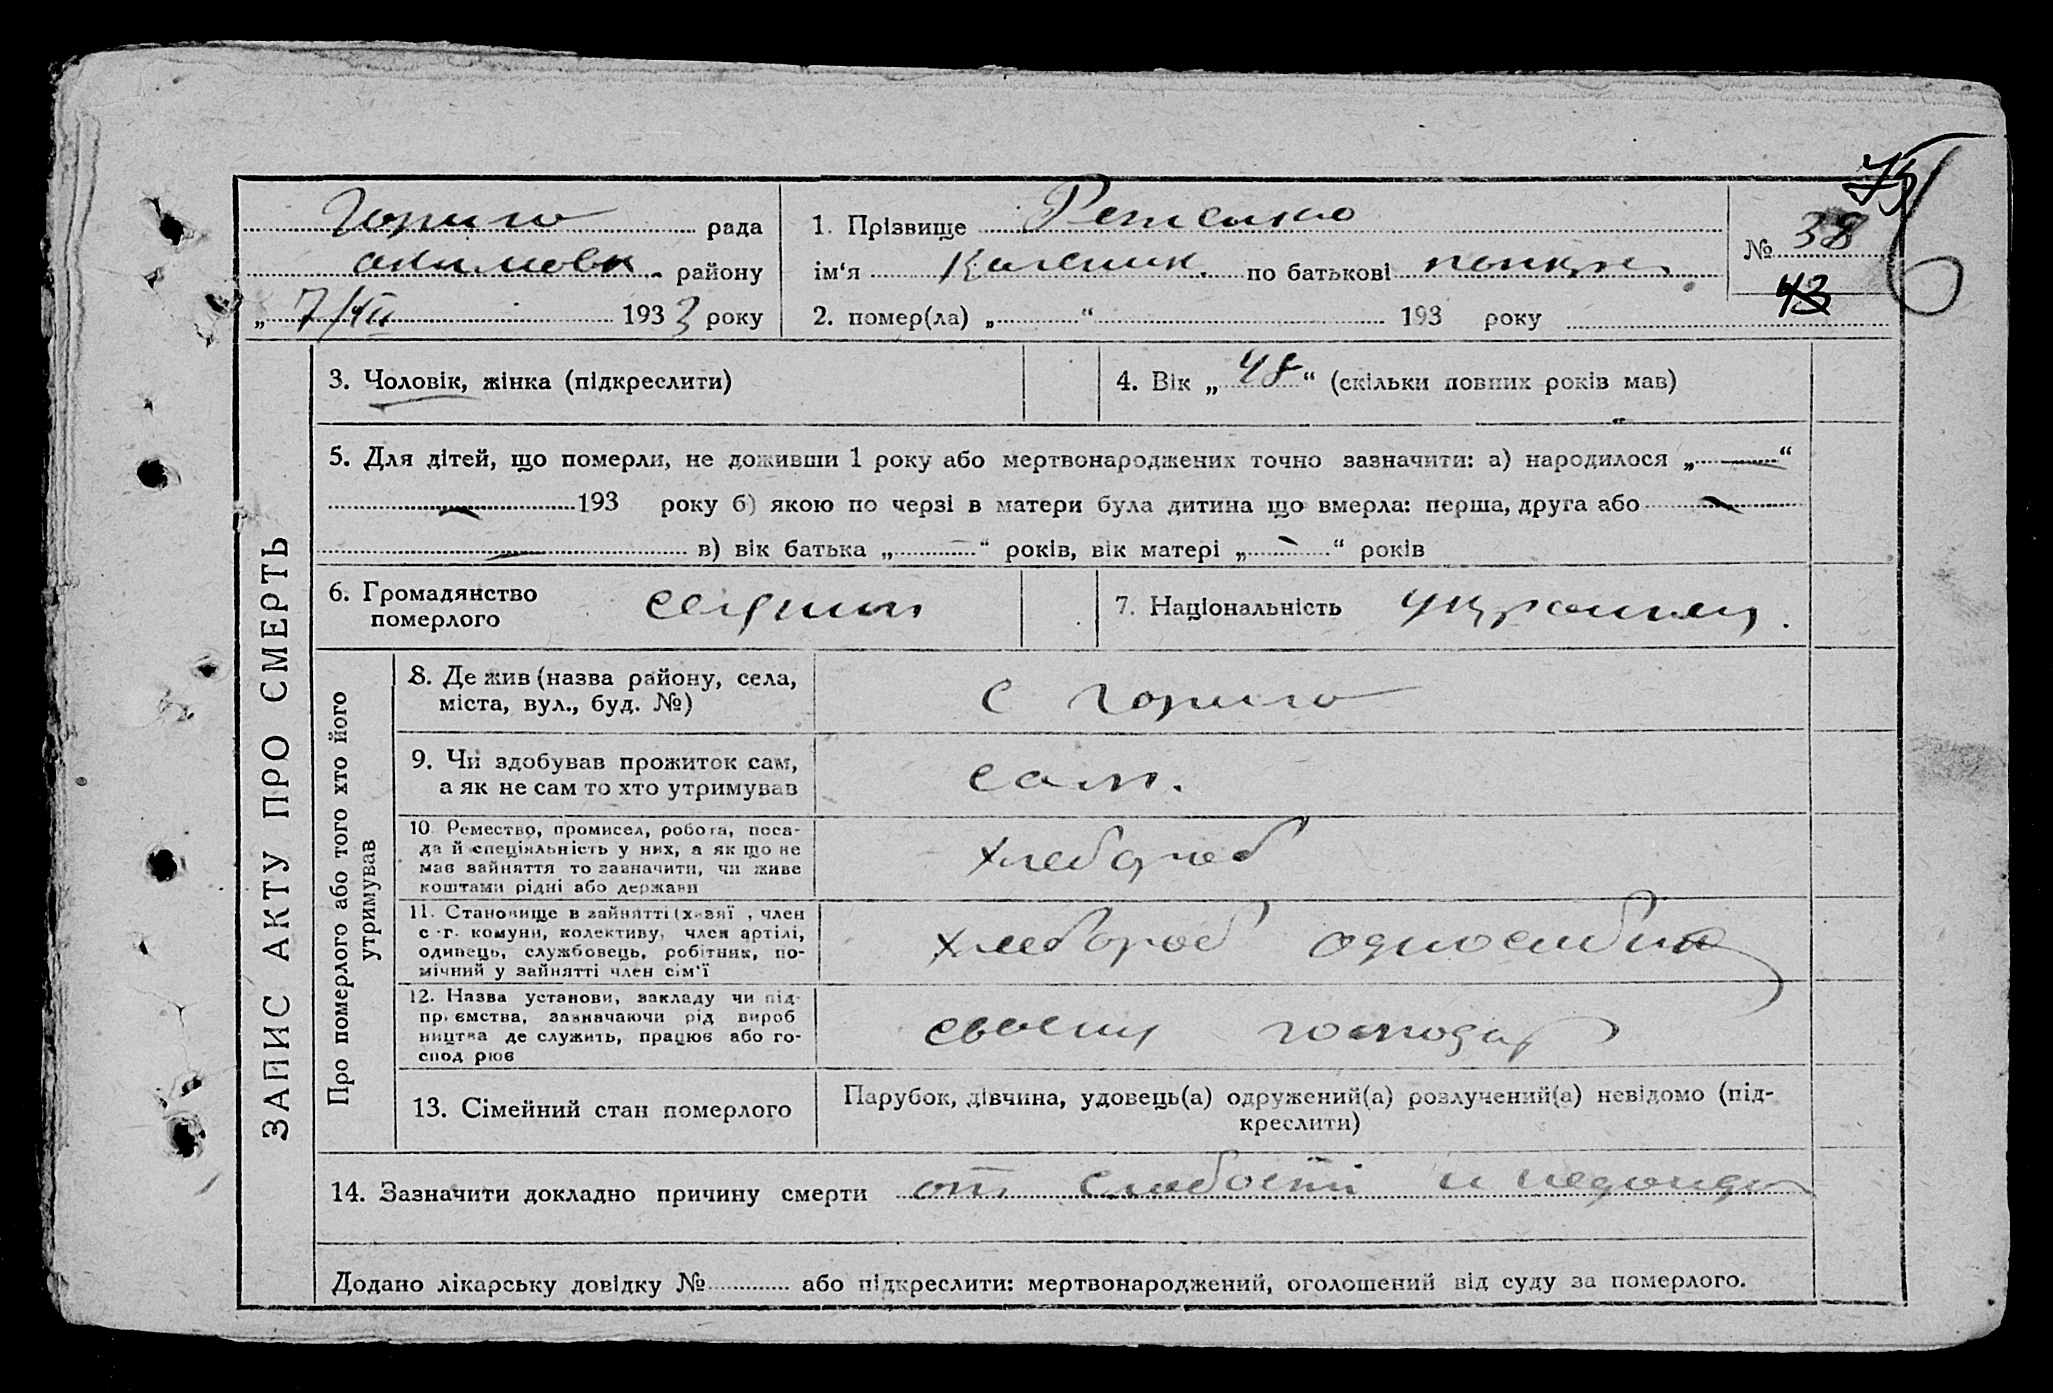 рада
1. Прізвище
№ 38
акимовк. району
ім‘я по батькові
43
„ 7/VII 1933 року
2. помер(ла) „ “ 193 року
ЗАПИС АКТУ ПРО СМЕРТЬ
3. Чоловік, жінка (підкреслити)
4. Вік „ 48 “ (скільки повних років мав)
5. Для дітей, що померли, не доживши 1 року або мертвонароджених точно зазначити: а) народилося „ — “
— 193 року б) якою по черзі в матери була дитина що вмерла: перша, друга або —
— в) вік батька „ “ років, вік матері „ — “ років
6. Громадянство
померлого
7. Національність украинец.
Про померлого або того хто його
утримував
8. Де жив (назва району, села,
міста, вул., буд. №)
с
9. Чи здобував прожиток сам,
а як не сам то хто утримував
сам.
10 Ремество, промисел, робота, поса-
да й спеціяльність у них, а як що не
має зайняття то зазначити, чи живе
коштами рідні або держави
хлебороб
11. Становище в зайнятті (х зяї , член
с-г. комуни, колективу, член артілі,
одинець, службовець, робітник, по-
мічний у зайнятті член сім‘ї
хлебороб
12. Назва установи, закладу чи під-
пр ємства, зазначаючи рід вироб
ництва де служить, працює або го-
спод рює
своему господар
13. Сімейний стан померлого
Парубок, дівчина, удовець(а) одружений(а) розлучений(а) невідомо (під-
креслити)
14. Зазначити докладно причину смерти от слабости и недоед
Додано лікарську довідку № або підкреслити: мертвонароджений, оголошений від суду за померлого.